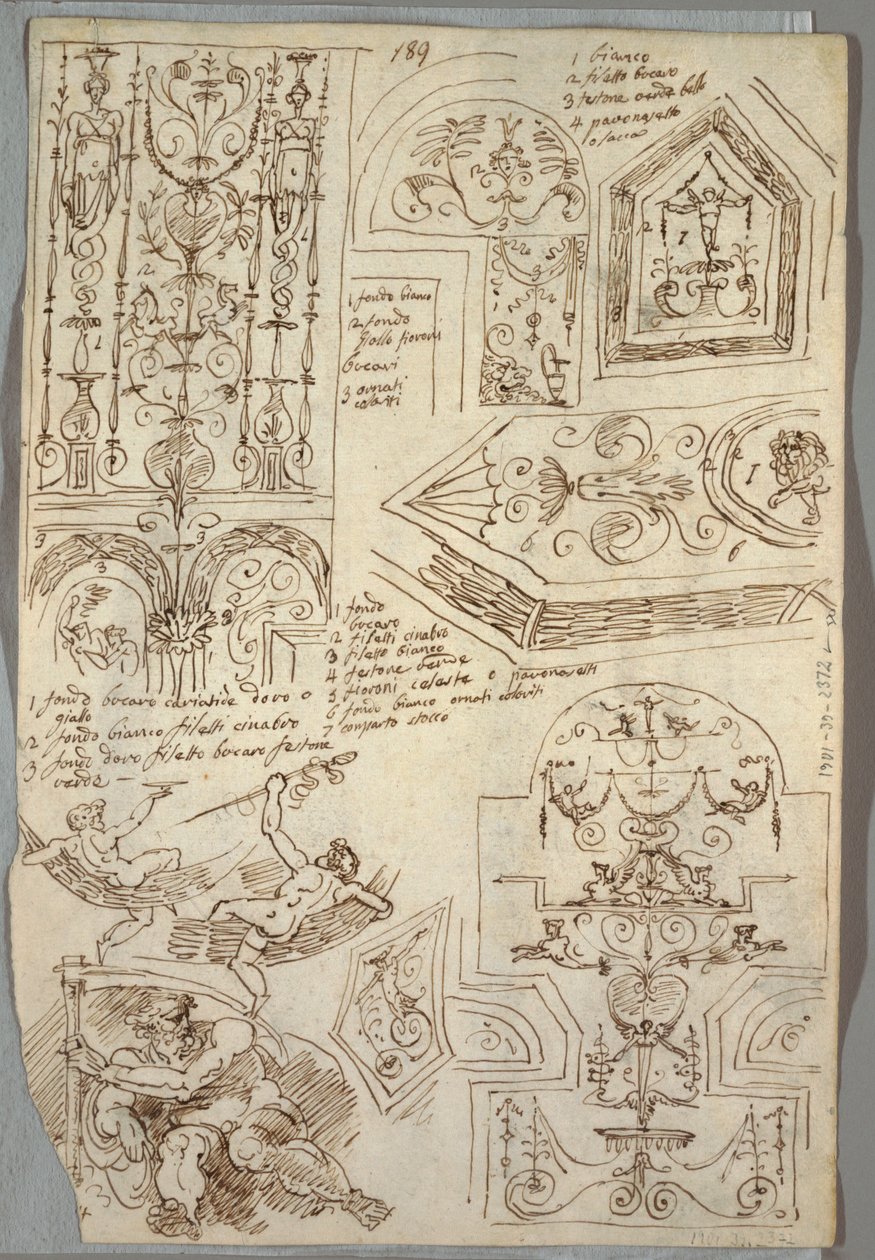 189
1 bianco
2 filetto bocaro
3 festone verde bello
4 pavonasetto
o lacca
1 fondo bianco
2 fondo
giallo fioroni
bocari
3 ornati
coloriti
1 fondo
bocaro
2 filetti cinabro
3 filetto bianco
4 festone verde
5 fioroni celeste o pavonasetti
6 fondo bianco ornati coloriti
7 comparto stocco
1 fondo bocaro cariatide doro o
giallo
2 fondo bianco filetti cinabro
3 fondo doro filetto bocaro festone
verde —
1901-39-2372
1901-39-2372